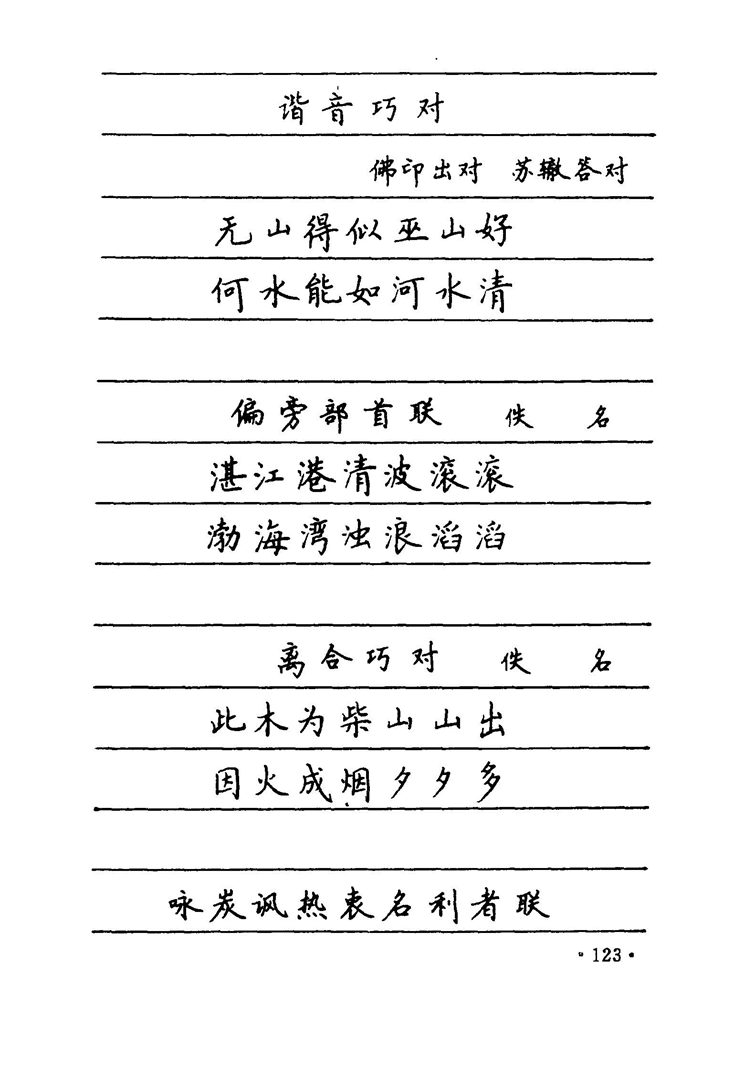 谐音巧对
佛印出对 苏辙答对
无山得似巫山好
何水能如河水清
偏旁部首联 佚 名
湛江港清波滚滚
渤海湾浊浪滔滔
离合巧对 佚 名
此木为柴山山出
因火成烟夕夕多
咏炭讽热衷名利者联
·123·